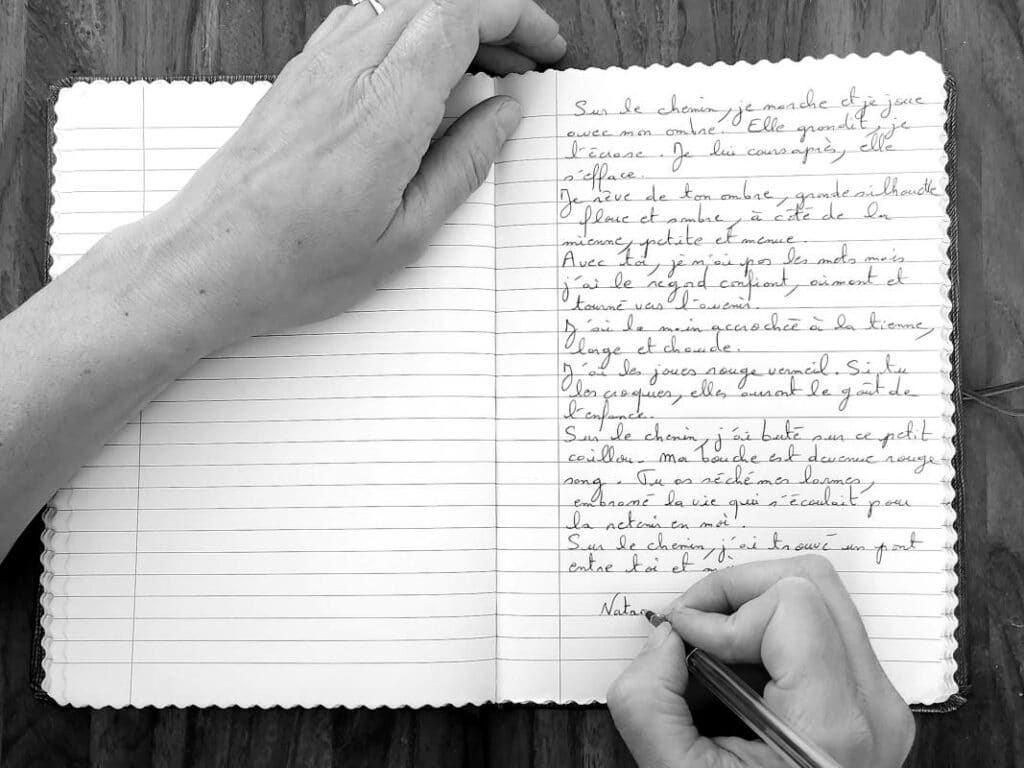 Sur le chemin, je marche et je joue
avec mon ombre. Elle grandit, je
l'écrase. Je lui cours après, elle
s'efface.
Je rêve de ton ombre, grande silhouette
floue et sombre, à côté de la
mienne, petite et menue.
Avec toi, je n'ai pas les mots mais
j'ai le regard confiant, aimant et
tourné vers l'avenir.
J'ai la main accrochée à la tienne,
large et chaude.
J'ai les joues rouge vermeil. Si tu
les croques, elles auront le goût de
l'enfance.
Sur le chemin, j'ai buté sur ce petit
caillou. Ma bouche est devenue rouge
sang. Tu as séché mes larmes,
embrassé la vie qui s'écoulait pour
la retenir en moi.
Sur le chemin, j'ai trouvé un pont
entre toi et